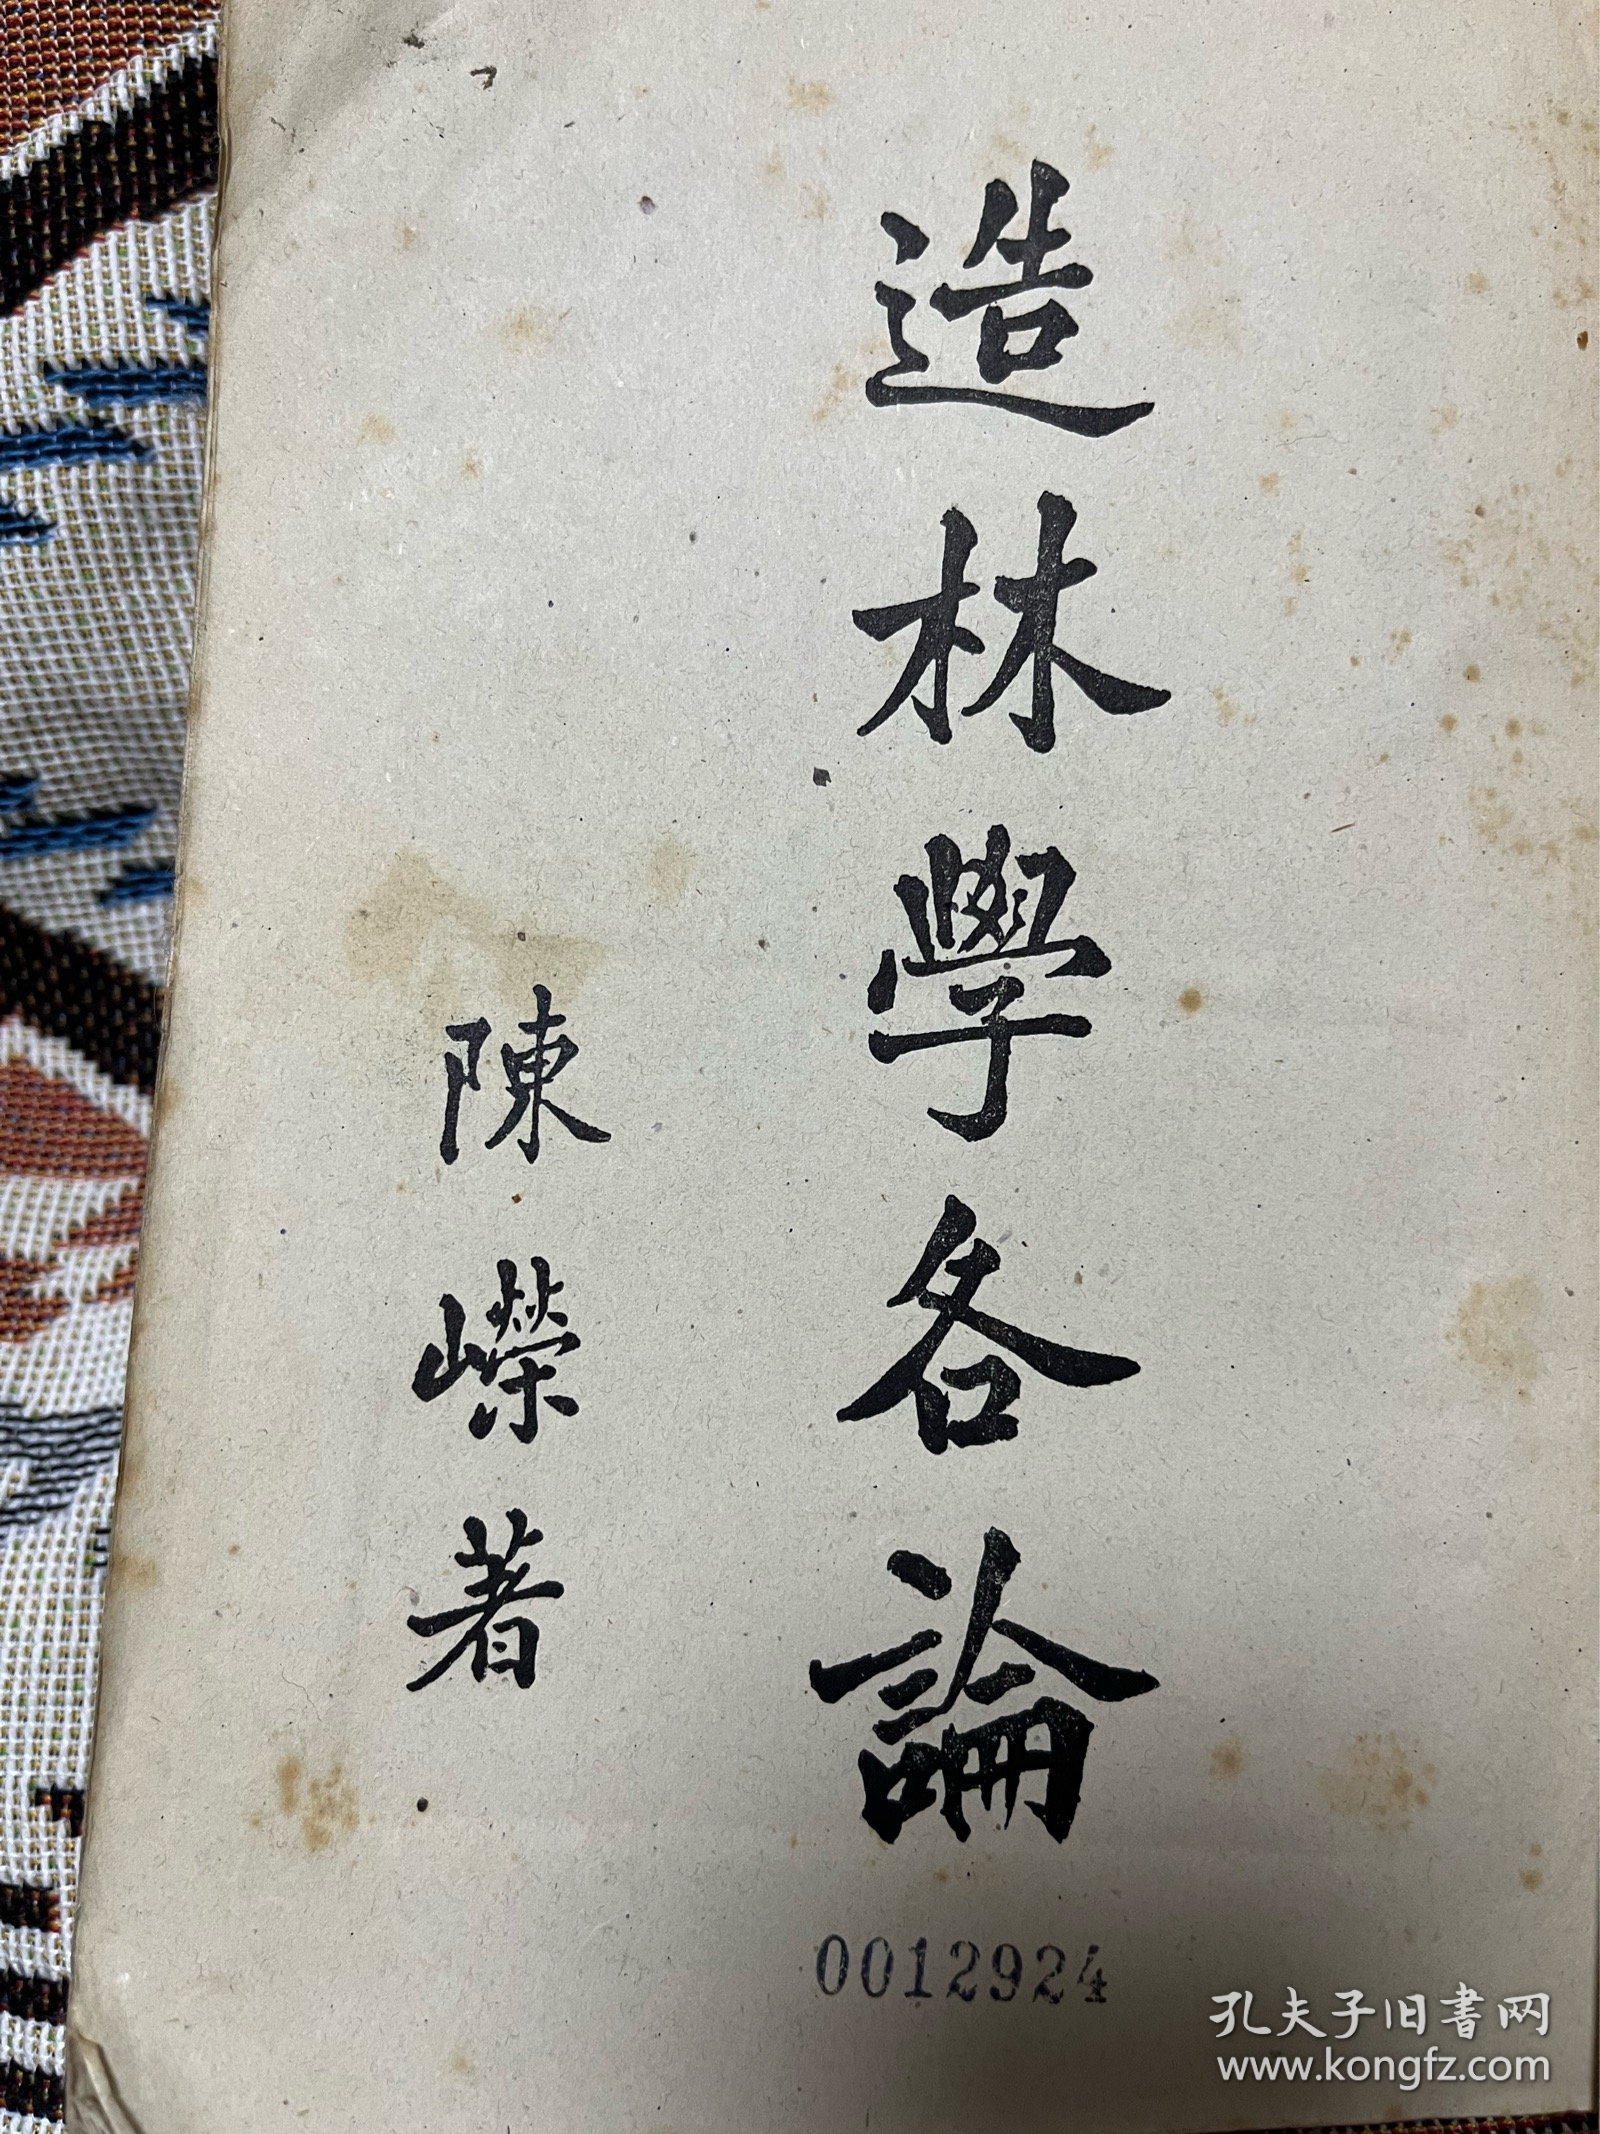 造林學各論
陳嶸著
0012924
孔夫子旧書网
www.kongfz.com